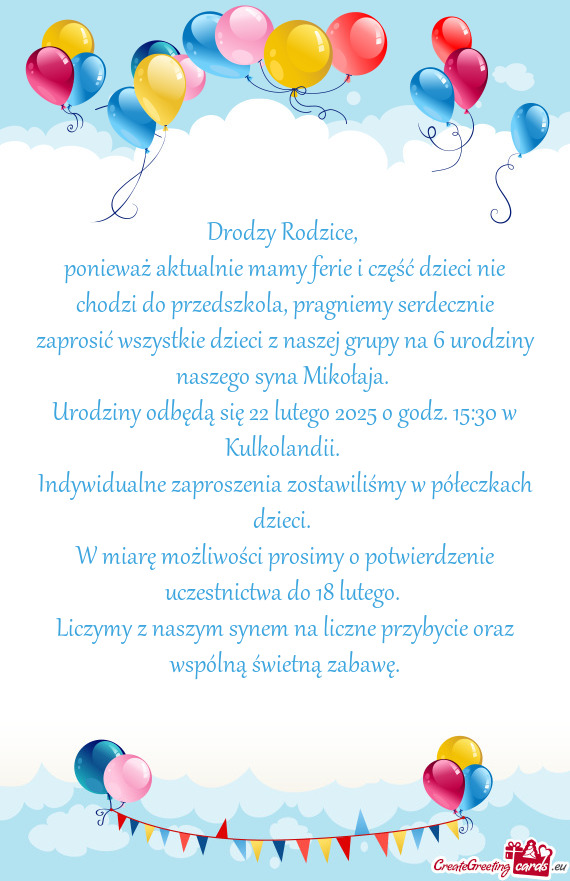 Drodzy Rodzice,
ponieważ aktualnie mamy ferie i część dzieci nie
chodzi do przedszkola, pragniemy serdecznie
zaprosić wszystkie dzieci z naszej grupy na 6 urodziny
naszego syna Mikołaja.
Urodziny odbędą się 22 lutego 2025 o godz. 15:30 w
Kulkolandii.
Indywidualne zaproszenia zostawiliśmy w półeczkach
dzieci.
W miarę możliwości prosimy o potwierdzenie
uczestnictwa do 18 lutego.
Liczymy z naszym synem na liczne przybycie oraz
wspólną świetną zabawę.
CreateGreeting cards .eu